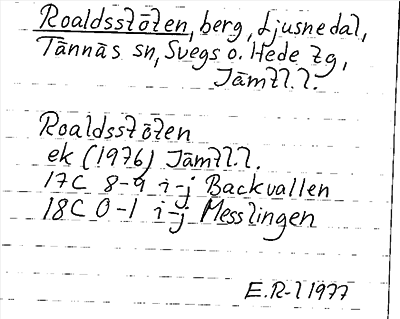 Roaldsstöten, berg, Ljusnedal,
Tännäs sn, Svegs o. Hede tg,
Jämtl. l.
Roaldsstöten
ek (1976) Jämtl. l.
17C 8-9 i-j Backvallen
18C 0-1 i-j Messlingen
E.R-l 1977